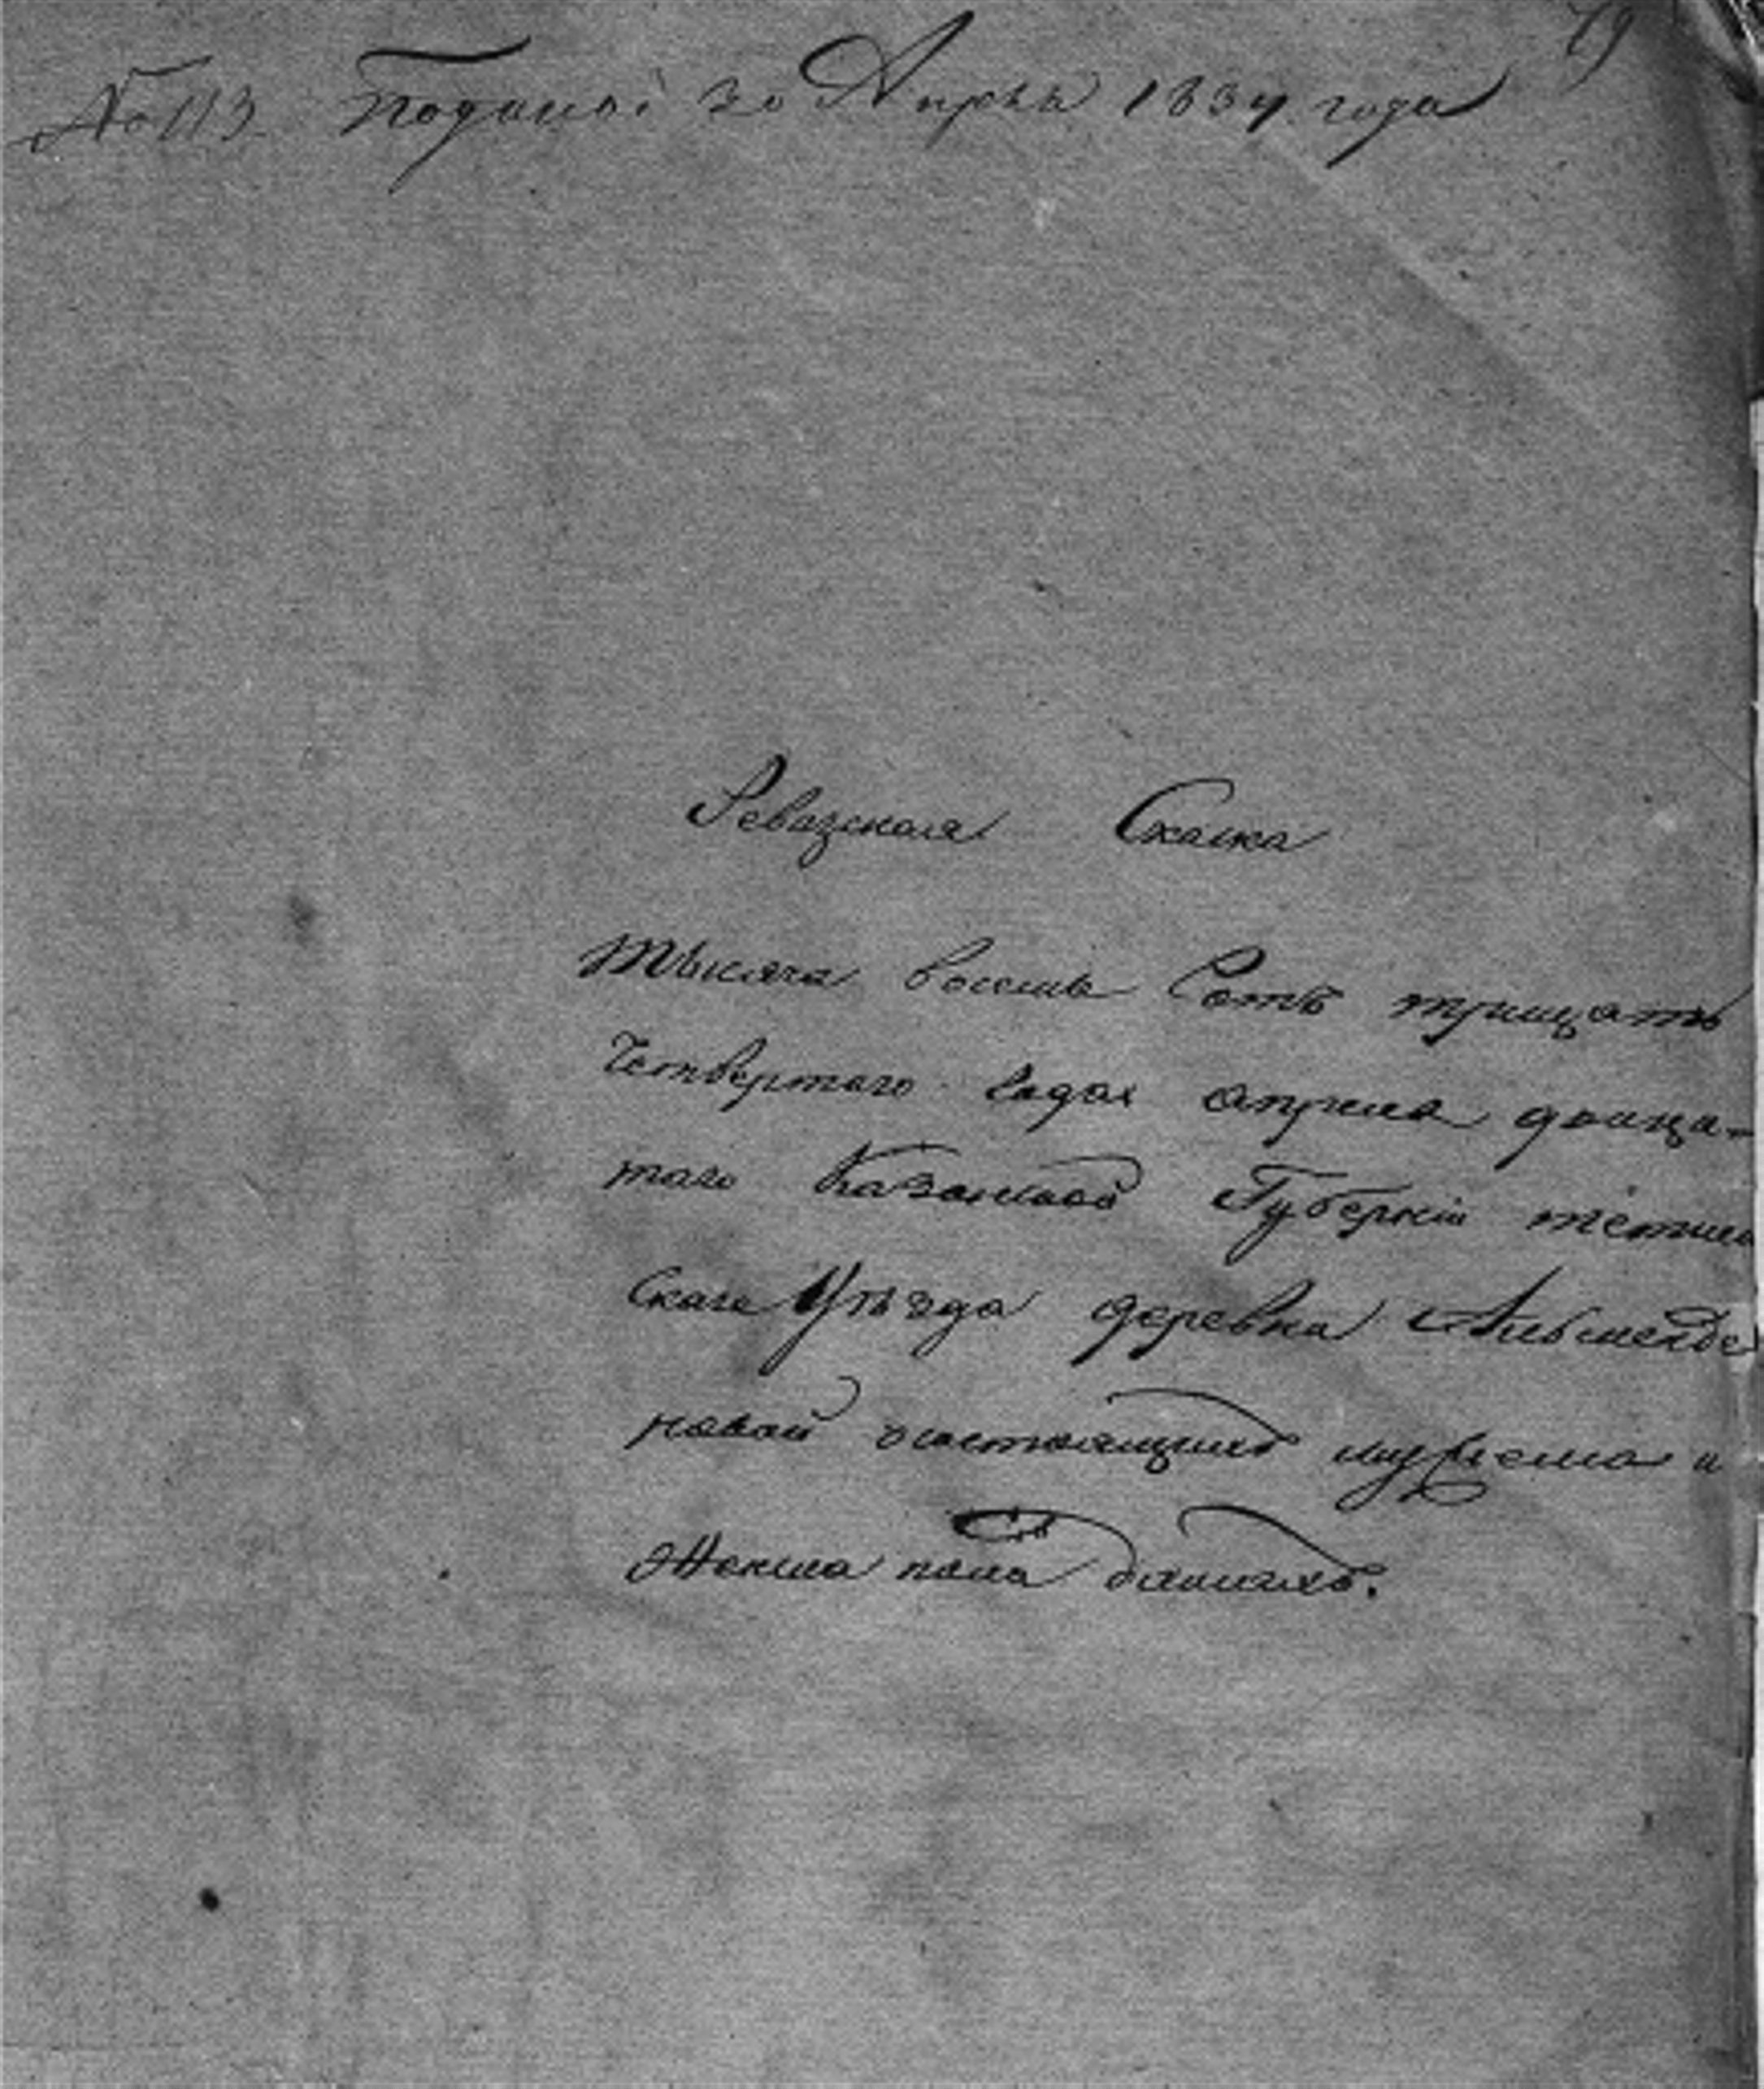 79
№ 113. Поданы 20 Апрѣля 1834 года
Ревазская Скаска
Тысяча восемь Сотъ трицать
Четвертаго Года апреля дваца-
таго Казанской Губерніи тетюш
Скаго Уѣзда деревна
новой состоящихъ мужеска и
Женска пола